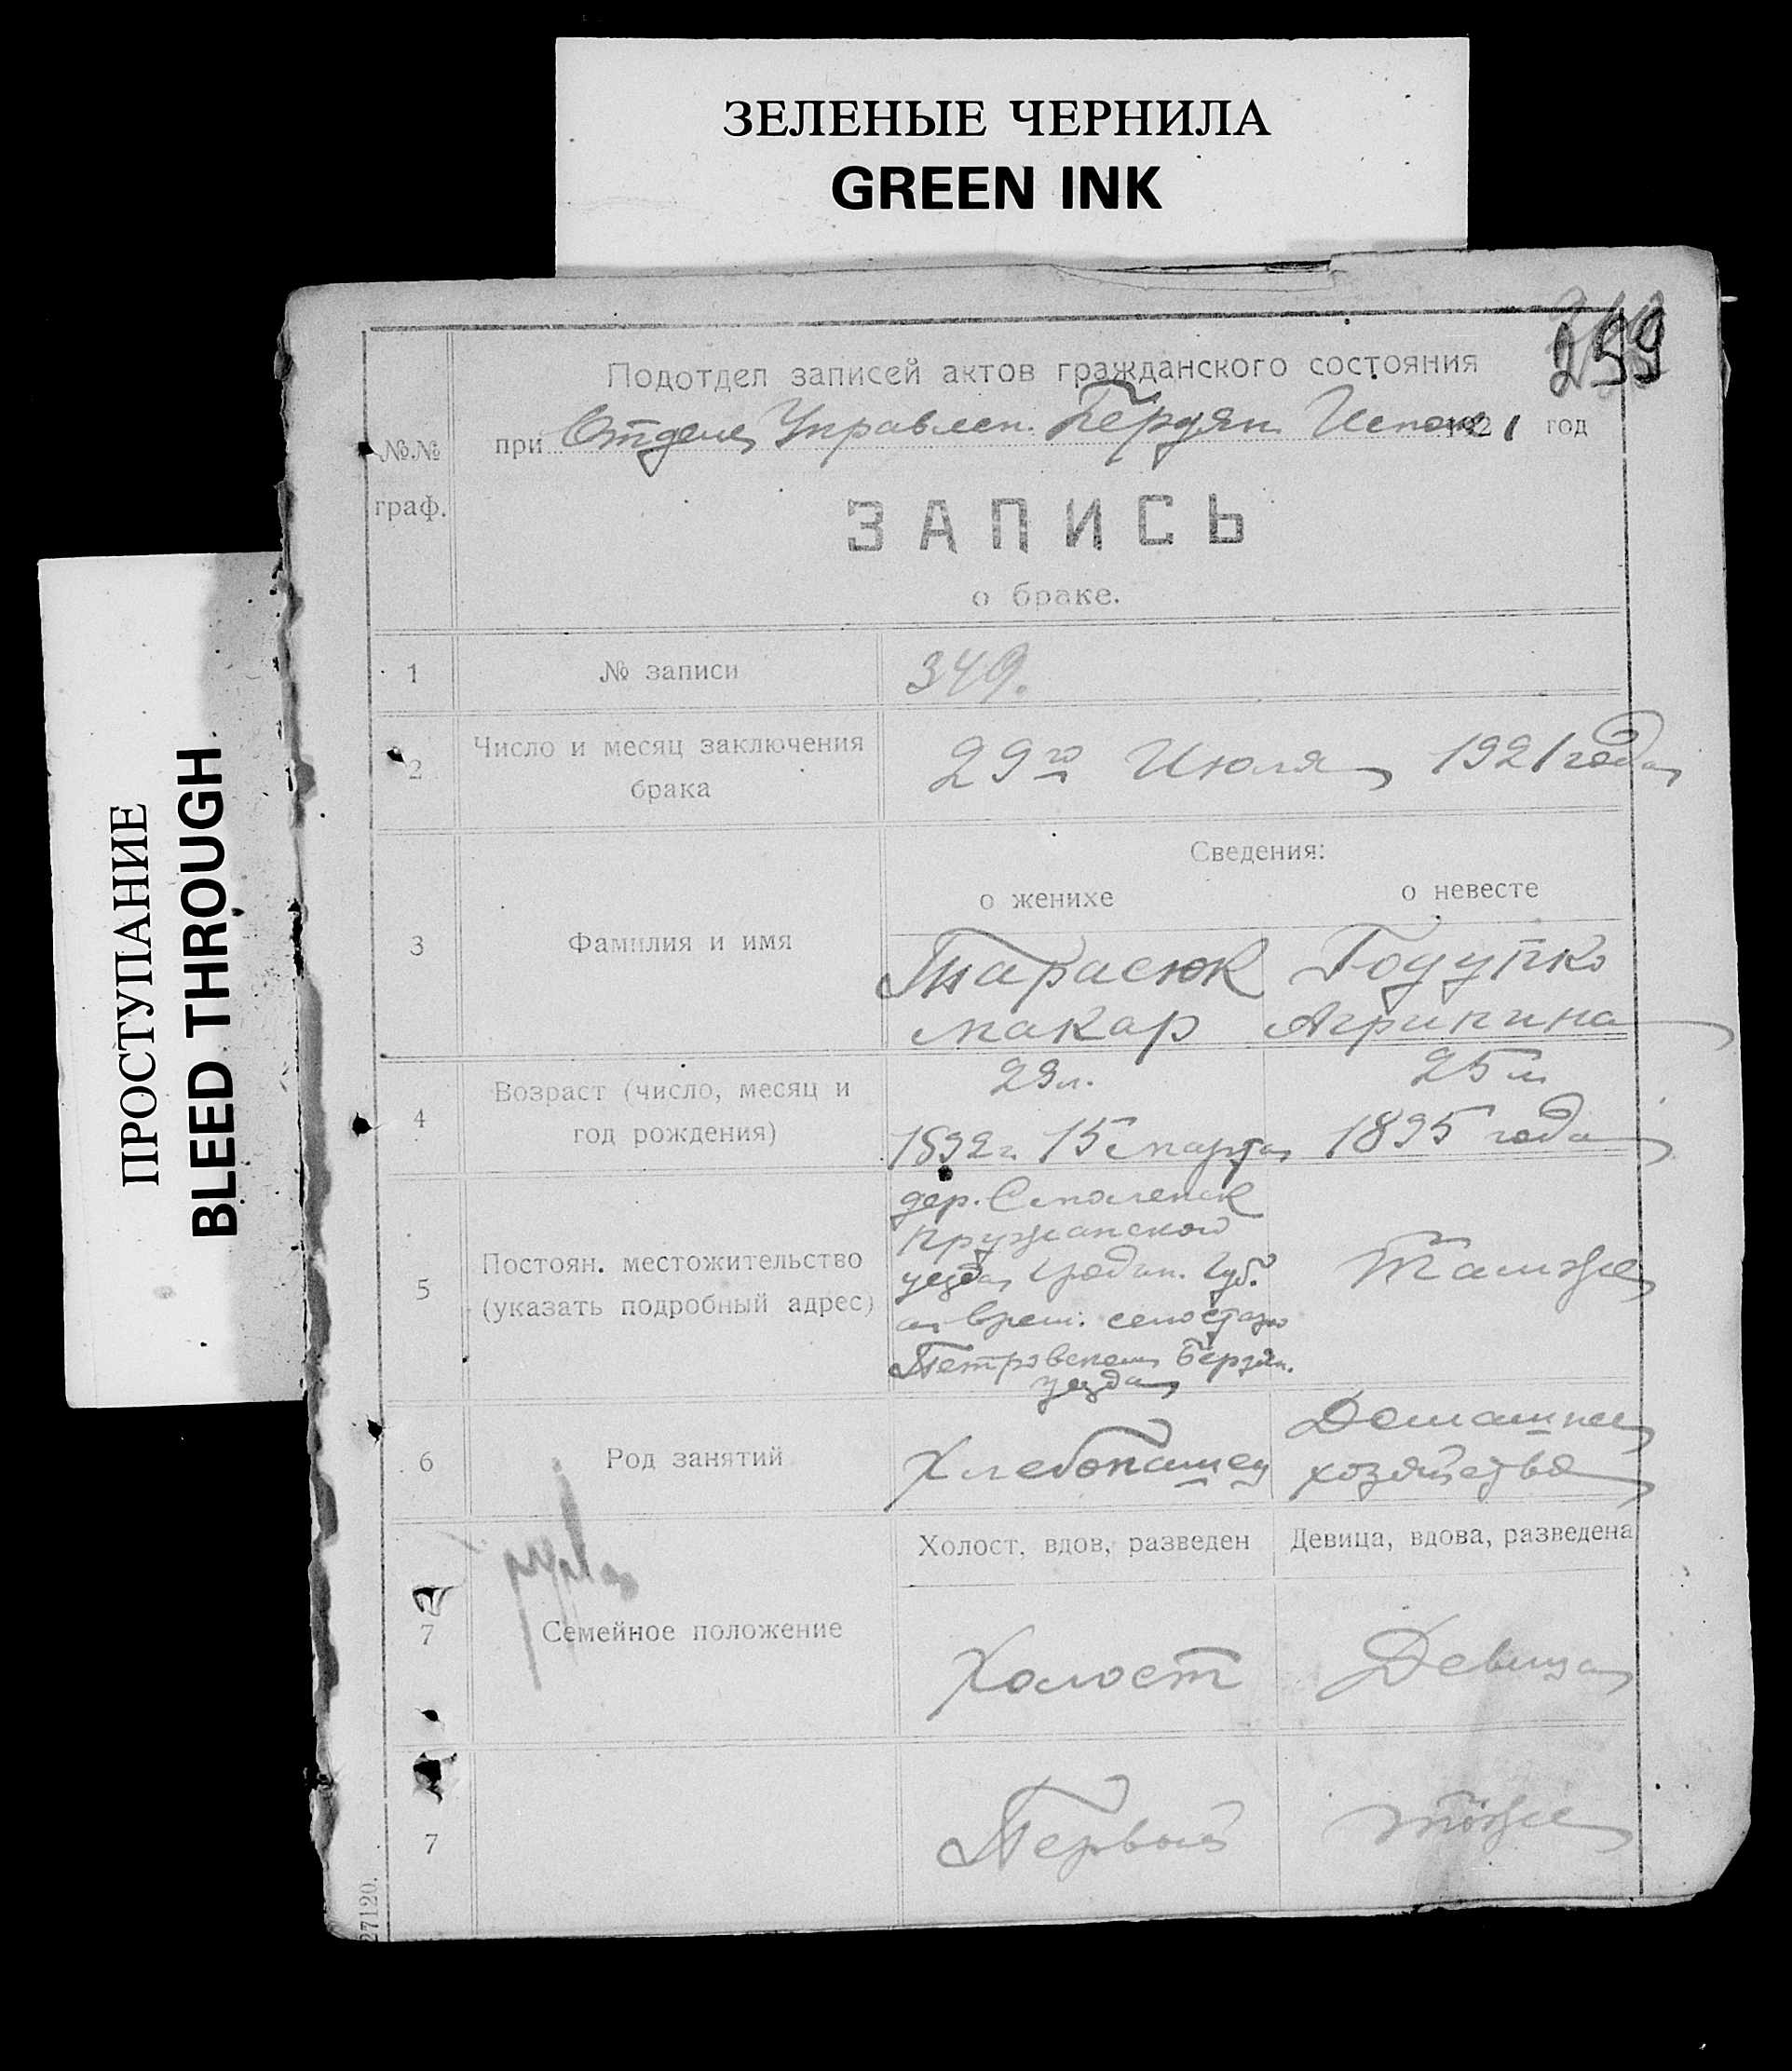 ЗЕЛЕНЫЕ ЧЕРНИЛА
GREEN INK
ПРОСТУПАНИЕ
BLEED THROUGH
259
Подотдел записей актов гражданского состояния
№№ граф.
при Отделе Управлен. Бердян Испол 1921 год
ЗАПИСЬ
о браке.
1 № записи 349.
2 Число и месяц заключения брака 29го Июля 1921 года
Сведения:
о женихе о невесте
3 Фамилия и имя
Тарасюк
Макар
Агрипина
4 Возраст (число, месяц и год рождения)
29 л. 25 л
1892 г. 15 марта 1895 года
5 Постоян. местожительство (указать подробный адрес)
дер. Смоленск
Пружанской
уезда Гродн. Губ.
а врем. село
Петровском Бердян.
уезда
Там же
6 Род занятий
Хлебопашец
Домашнее
хозяйство
Холост, вдов, разведен Девица, вдова, разведена
7 Семейное положение
Холост Девица
7 Первый тоже
27120.